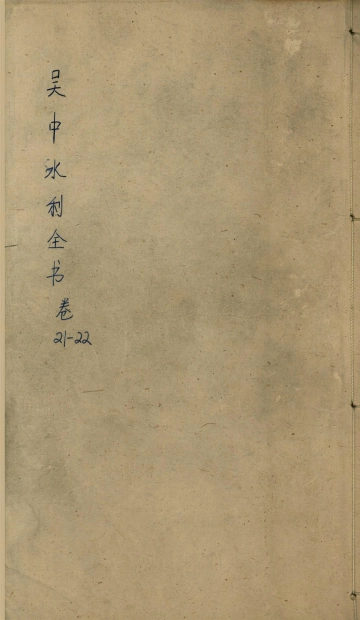 吴中水利全书卷
21-22